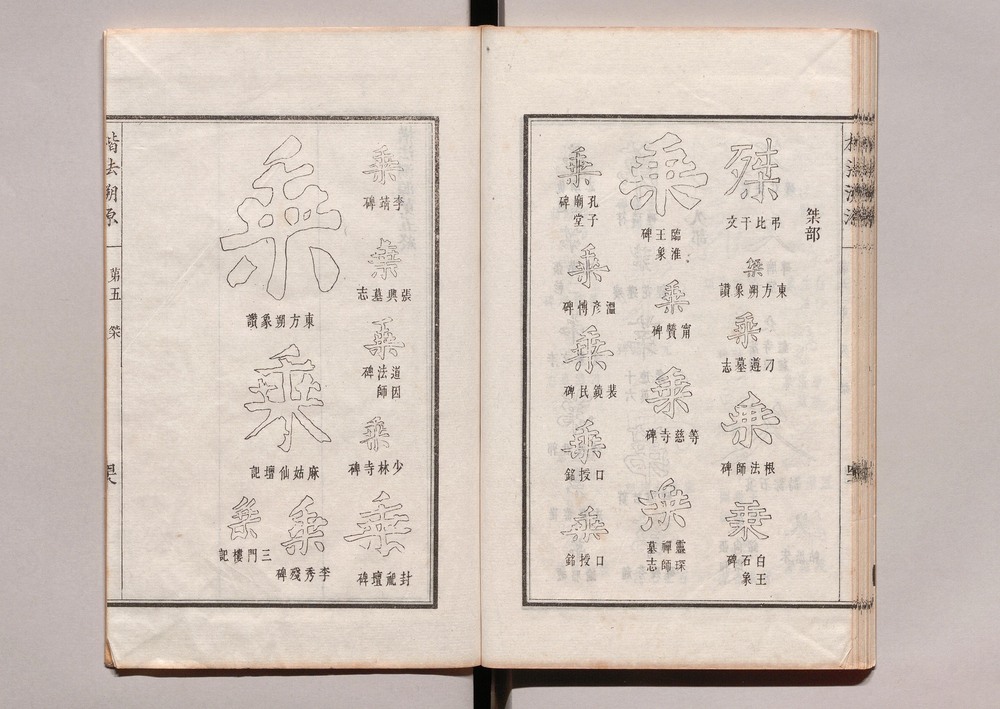 桀部
桀
弔比干文
桀
東方朔象讚
乗
刁遵墓志
乗
根法師碑
乗
白石碑
王象
乗
臨王碑
淮象
乗
甯贊碑
乗
等慈寺碑
乗
靈禪墓
琛師志
乗
孔廟碑
子堂
乗
溫彥博碑
乗
裴鏡民碑
乗
口授銘
乗
口授銘
乗
李靖碑
乗
張興墓志
乗
道法碑
因師
乗
少林寺碑
乗
封祀壇碑
乗
東方朔象讚
乗
麻姑仙壇記
乗
李秀殘碑
乗
三門樓記
楷法溯原
第五
桀